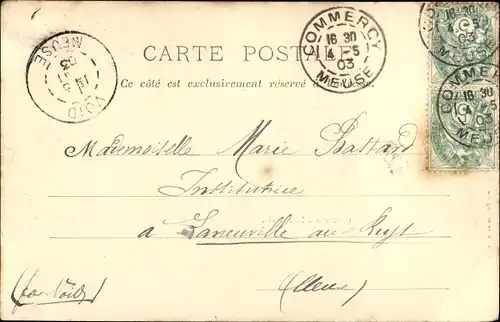 CARTE POSTALE
Ce côté est exclusivement réservé à l'adresse.
COMMERCY
16 30
14 -5
03
MEUSE
COMMERCY
16 30
4 -5
03
MEU
VOID
15 5
03
MEUSE
Mademoiselle Marie Bastard
Institutrice
à Laneuville au Rupt
(Meuse)
(par Void)